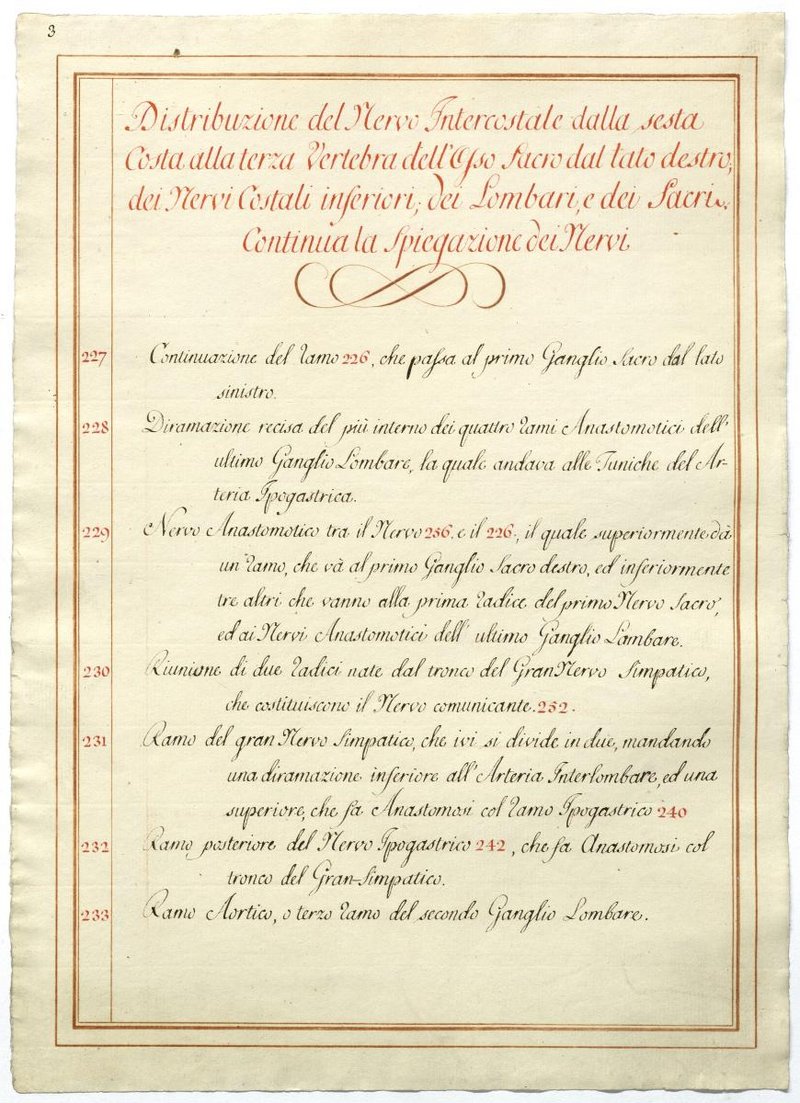 3
Distribuzione del Nervo Intercostale dalla sesta
Costa alla terza Vertebra dell'Osso Sacro dal lato destro;
dei Nervi Costali inferiori; dei Lombari, e dei Sacri.
Continua la Spiegazione dei Nervi
227 Continuazione del ramo 226, che passa al primo Ganglio Sacro dal lato
sinistro.
228 Diramazione recisa del più interno dei quattro rami Anastomotici dell'
ultimo Ganglio Lombare, la quale andava alle Tuniche del Ar-
teria Ipogastrica.
229 Nervo Anastomotico tra il Nervo 256. e il 226., il quale superiormente dà
un ramo, che và al primo Ganglio Sacro destro, ed inferiormente
tre altri che vanno alla prima radice del primo Nervo Sacro,
ed ai Nervi Anastomotici dell' ultimo Ganglio Lombare.
230 Riunione di due radici nate dal tronco del Gran Nervo Simpatico,
che costituiscono il Nervo comunicante. 252.
231 Ramo del gran Nervo Simpatico, che ivi si divide in due, mandando
una diramazione inferiore all'Arteria Interlombare, ed una
superiore, che fa Anastomosi col ramo Ipogastrico 240
232 Ramo posteriore del Nervo Ipogastrico 242, che fa Anastomosi col
tronco del Gran-Simpatico.
233 Ramo Aortico, o terzo ramo del secondo Ganglio Lombare.